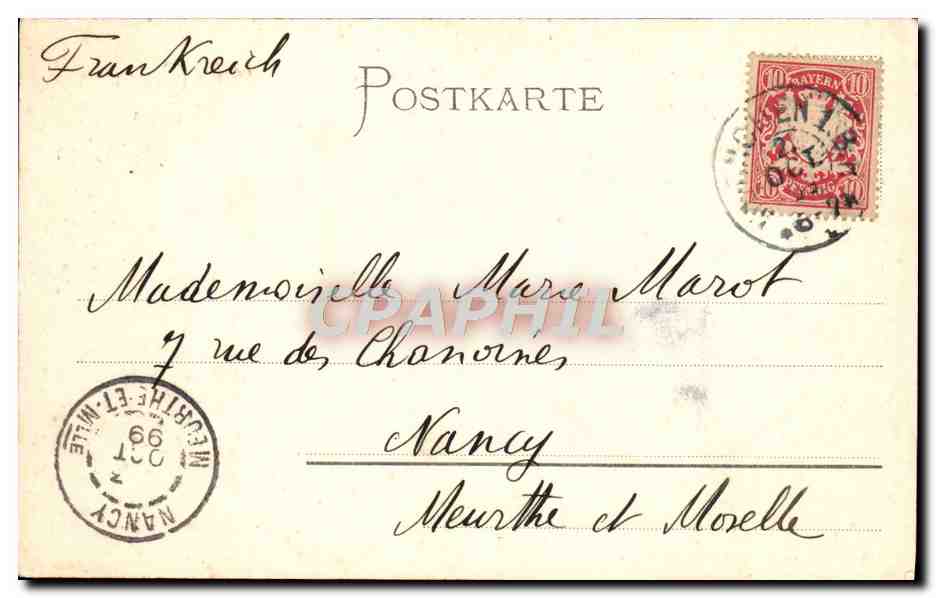 Frankreich
POSTKARTE
10 BAYERN 10
10 PFENNIG 10
OCT
Mademoiselle Marie Marot
CPAPHIL
7 rue des Chanoines
Nancy
Meurthe et Moselle
NANCY
MEURTHE-ET-MLLE
OCT
99